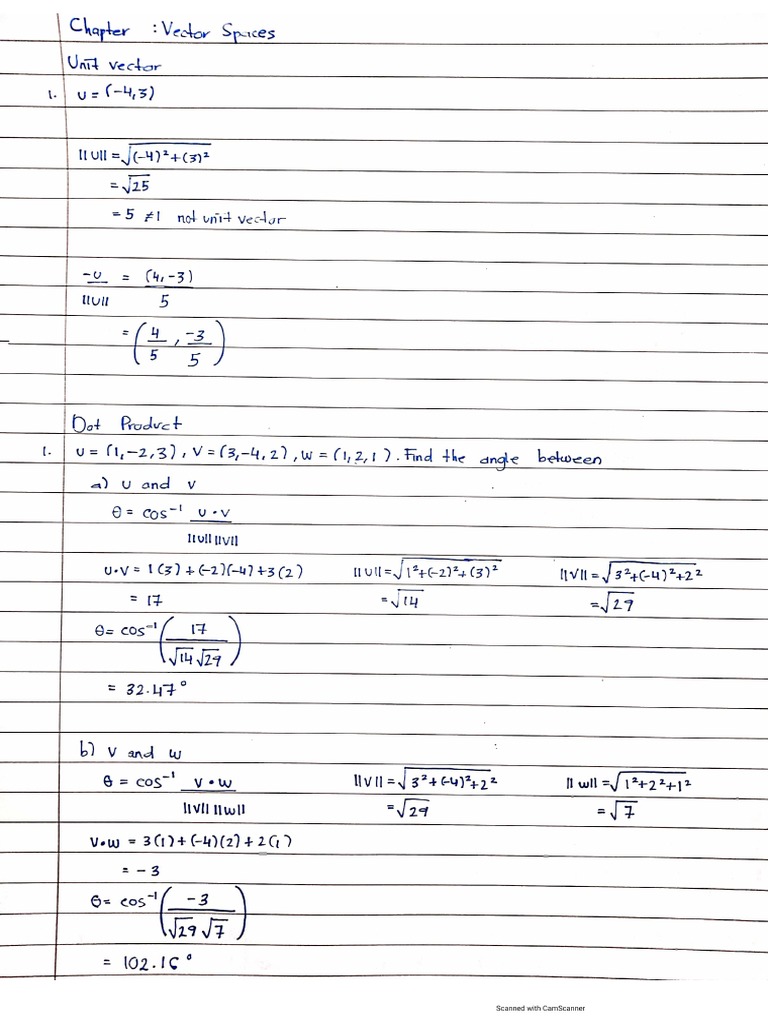 Chapter : Vector Spaces
Unit vector
1. U = (-4,3)
||U|| = √(-4)² + (3)²
= √25
= 5 ≠ 1 not unit vector
-U = (4,-3)
||U|| 5
= (4/5 , -3/5)
Dot Product
1. U = (1,-2,3), V = (3,-4,2), W = (1,2,1). Find the angle between
a) U and V
θ = cos⁻¹ U • V
||U|| ||V||
U•V = 1(3) + (-2)(-4) + 3(2) ||U|| = √1²+(-2)²+(3)² ||V|| = √3²+(-4)²+2²
= 17 = √14 = √29
θ = cos⁻¹ (17 / √14 √29)
= 32.47°
b) V and W
θ = cos⁻¹ V • W ||V|| = √3²+(-4)²+2² ||W|| = √1²+2²+1²
||V|| ||W|| = √29 = √7
V•W = 3(1) + (-4)(2) + 2(1)
= -3
θ = cos⁻¹ (-3 / √29 √7)
= 102.16°
Scanned with CamScanner